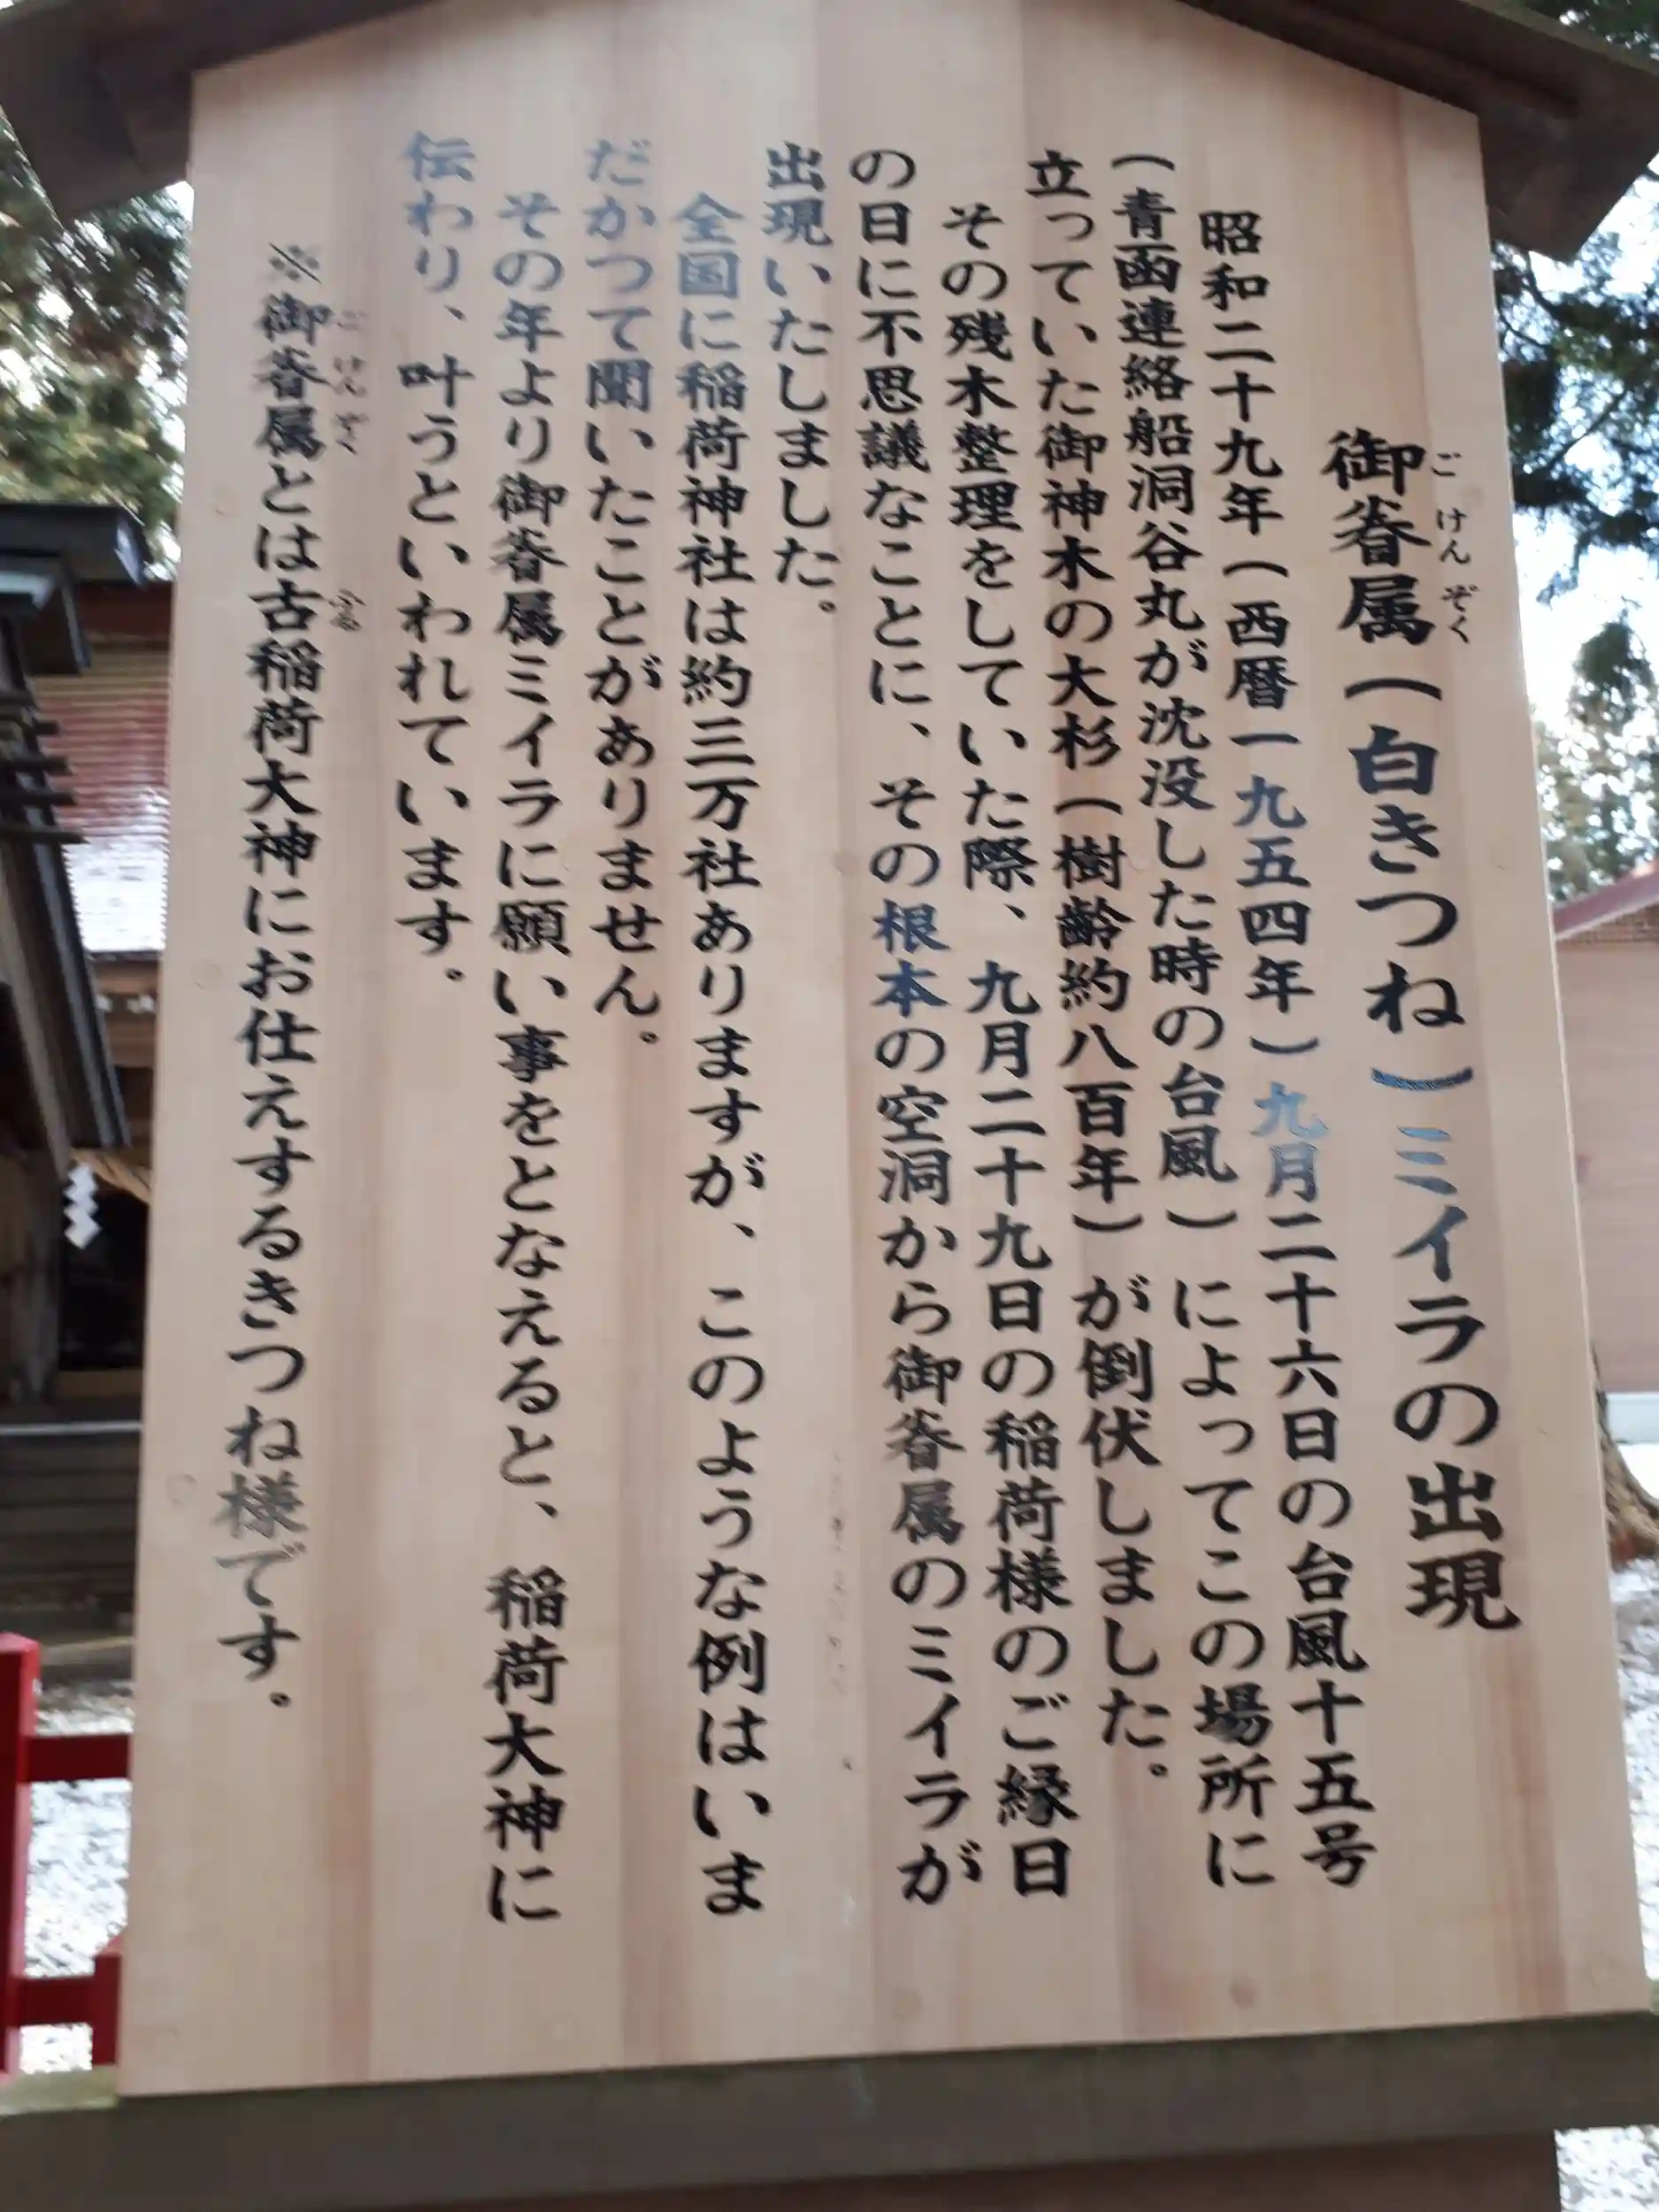 御眷属（白きつね）ミイラの出現
ごけんぞく
昭和二十九年（西暦一九五四年）九月二十六日の台風十五号
（青函連絡船洞谷丸が沈没した時の台風）によってこの場所に
立っていた御神木の大杉（樹齢約八百年）が倒伏しました。
その残木整理をしていた際、九月二十九日の稲荷様のご縁日
の日に不思議なことに、その根本の空洞から御眷属のミイラが
出現いたしました。
全国に稲荷神社は約三万社ありますが、このような例はいま
だかつて聞いたことがありません。
その年より御眷属ミイラに願い事をとなえると、稲荷大神に
伝わり、叶うといわれています。
※御眷属とは古稲荷大神にお仕えするきつね様です。
ごけんぞく ふる